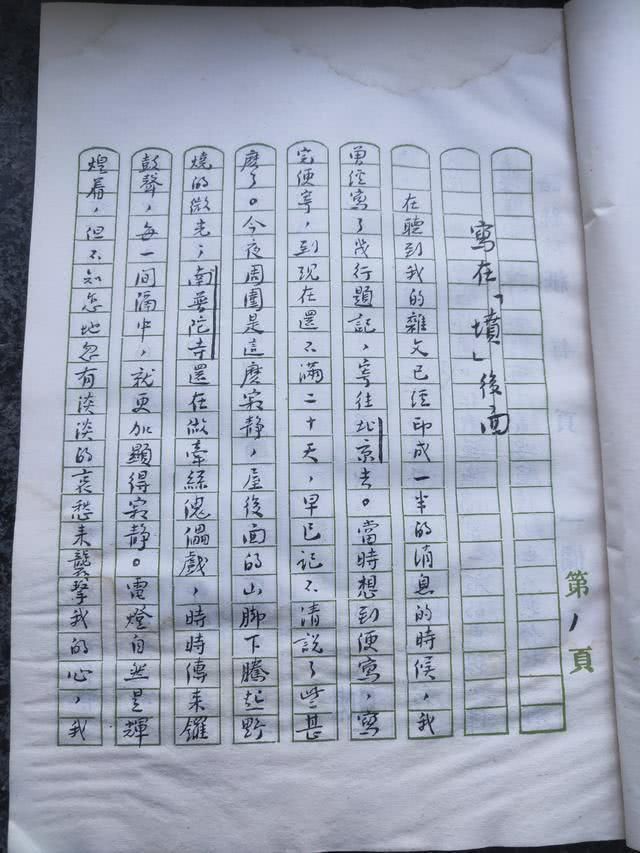 第1頁
寫在「墳」後面
在聽到我的雜文已經印成一半的消息的時候，我
曾經寫了幾行題記，寄往北京去。當時想到便寫，寫
完便寄，到現在還不滿二十天，早已記不清說了些甚
麽了。今夜周圍是這麽寂静，屋後面的山脚下騰起野
燒的微光；南普陀寺還在做牽絲傀儡戲，時時傳來鑼
鼓聲，每一間隔中，就更加顯得寂静。電燈自然是輝
煌着，但不知怎地忽有淡淡的哀愁來襲擊我的心，我